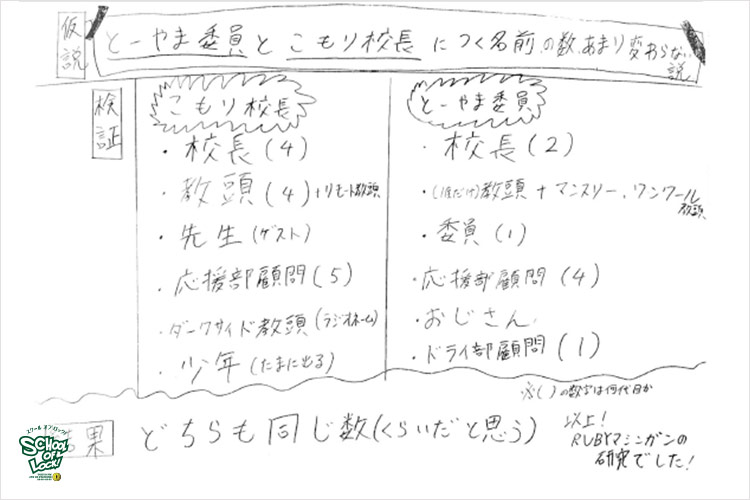 仮説
とーやま委員とこもり校長につく名前の数、あまり変わらない説
検証
こもり校長
・校長(4)
・教頭(4)+リモート教頭
・先生(ゲスト)
・応援部顧問(5)
・ダークサイド教頭(ラジオネーム)
・少年(たまに出る)
とーやま委員
・校長(2)
教頭+マンスリー、ワンワール教頭
・委員(1)
・応援部顧問(4)
・おじさん
・ドライ部顧問(1)
※( )の数字は何代目か
果
どちらも同じ数(くらいだと思う)
以上!
RUBYマシンガンの
研究でした!
スクール オブ ロック!
SCHOOL
OF
LOCK!